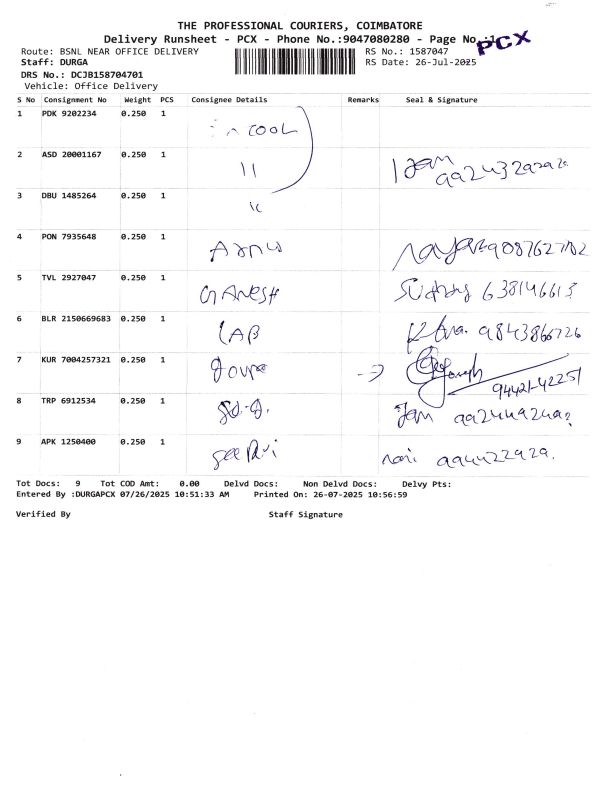 THE PROFESSIONAL COURIERS, COIMBATORE
Delivery Runsheet - PCX - Phone No.:9047080280 - Page No.:1
PCX
Route: BSNL NEAR OFFICE DELIVERY RS No.: 1587047
Staff: DURGA RS Date: 26-Jul-2025
DRS No.: DCJB158704701
Vehicle: Office Delivery
S No Consignment No Weight PCS Consignee Details Remarks Seal & Signature
1 PDK 9202234 0.250 1 COOL
2 ASD 20001167 0.250 1 11
3 DBU 1485264 0.250 1
4 PON 7935648 0.250 1
5 TVL 2927047 0.250 1 GANESH
6 BLR 2150669683 0.250 1 LAB 9843866726
7 KUR 7004257321 0.250 1 9442142251
8 TRP 6912534 0.250 1
9 APK 1250400 0.250 1
Tot Docs: 9 Tot COD Amt: 0.00 Delvd Docs: Non Delvd Docs: Delvy Pts:
Entered By :DURGAPCX 07/26/2025 10:51:33 AM Printed On: 26-07-2025 10:56:59
Verified By Staff Signature